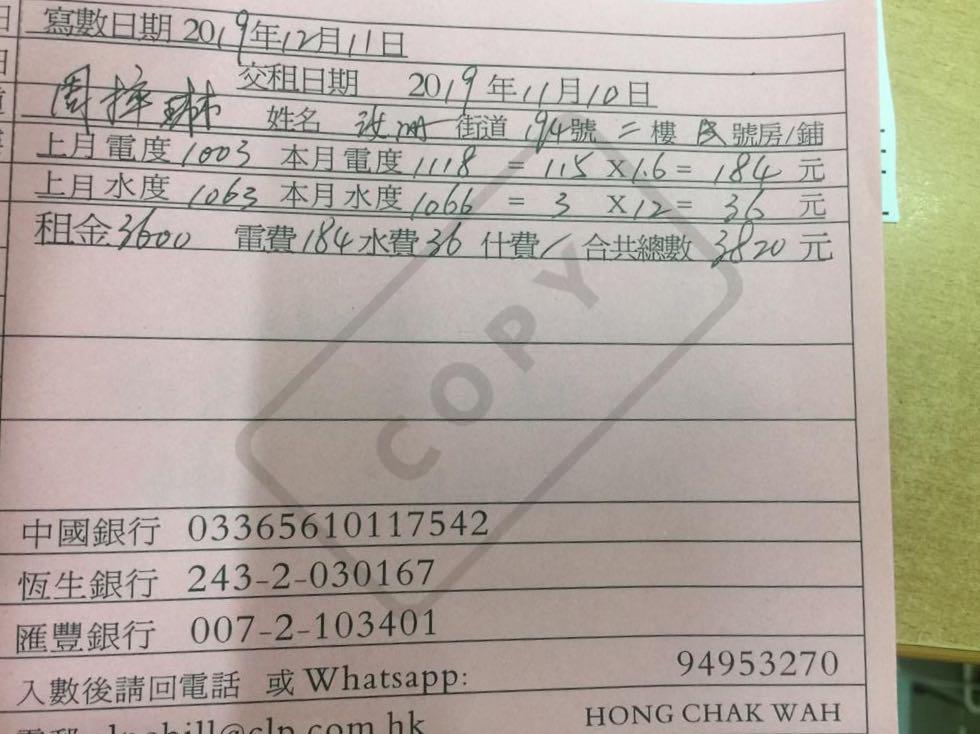 寫數日期 2019年12月11日
交租日期 2019年11月10日
周 姓名 汝州街道 194號 二樓 號房/鋪
上月電度 1003 本月電度 1118 = 115 X1.6 = 184 元
上月水度 1063 本月水度 1066 = 3 X12 = 36 元
租金3600 電費184水費36 什費/ 合共總數 3820 元
COPY
中國銀行 03365610117542
恆生銀行 243-2-030167
匯豐銀行 007-2-103401
入數後請回電話 或 Whatsapp: 94953270
HONG CHAK WAH